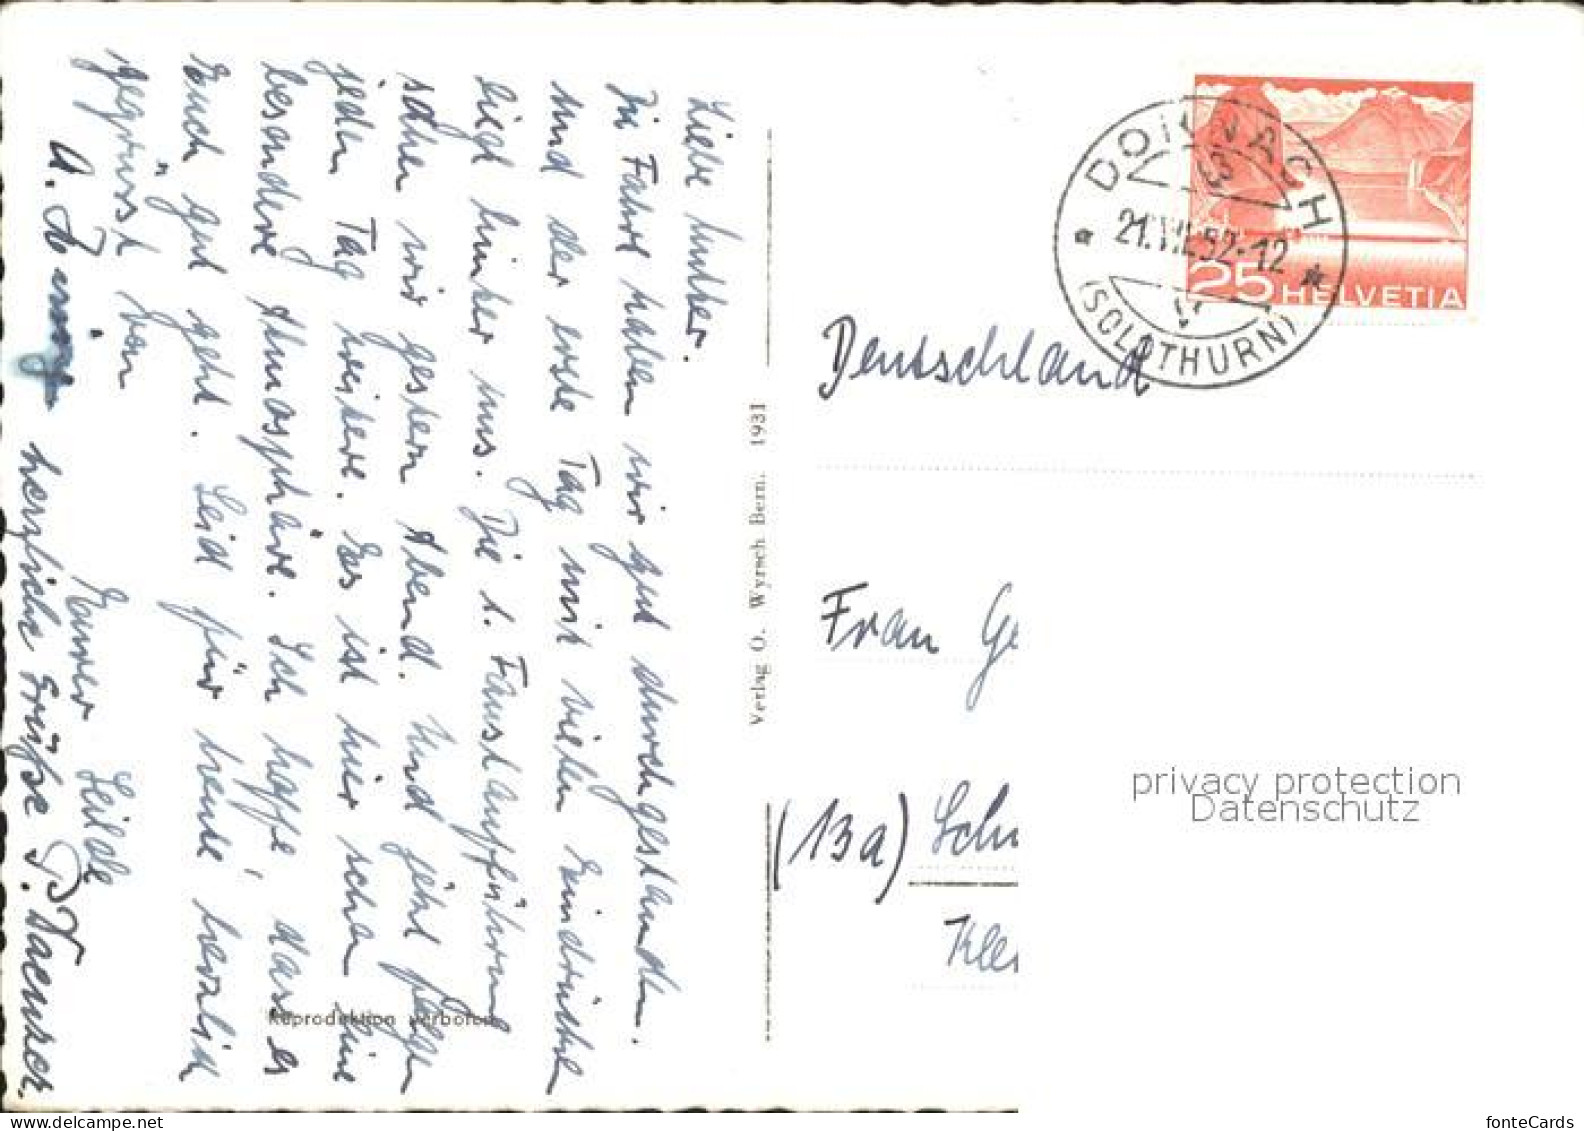 Liebe Mutter.
Die Fahrt haben wir gut durchgestanden.
und der erste Tag mit vielen Eindrücken
liegt hinter uns. Die 1. Faustaufführung
sahen wir gestern Abend. Und jetzt folgen
jeden Tag weitere. Es ist hier schon eine
besondere Atmosphäre. Ich hoffe dass es
Euch gut geht. Seid für heute herzlich
gegrüsst von
Eurer Hilde
herzliche Grüße
Reproduktion verboten
Verlag O. Wyrsch Bern. 1931
DORNACH
21.VII.52-12
(SOLOTHURN)
25 HELVETIA
Deutschland
Frau Ge
(13a) Schw
Kle
privacy protection
Datenschutz
fonteCards